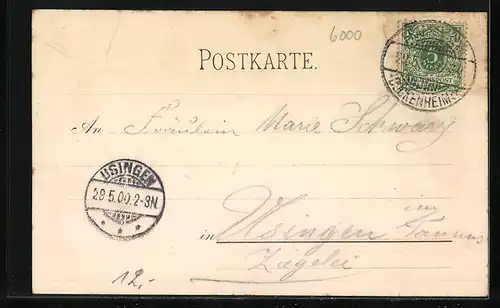 6000
POSTKARTE.
BOCKENHEIM
An Fräulein Marie Schwarz
USINGEN
29.5.00.2-3N.
in Usingen im Taunus
Ziegelei
12.-